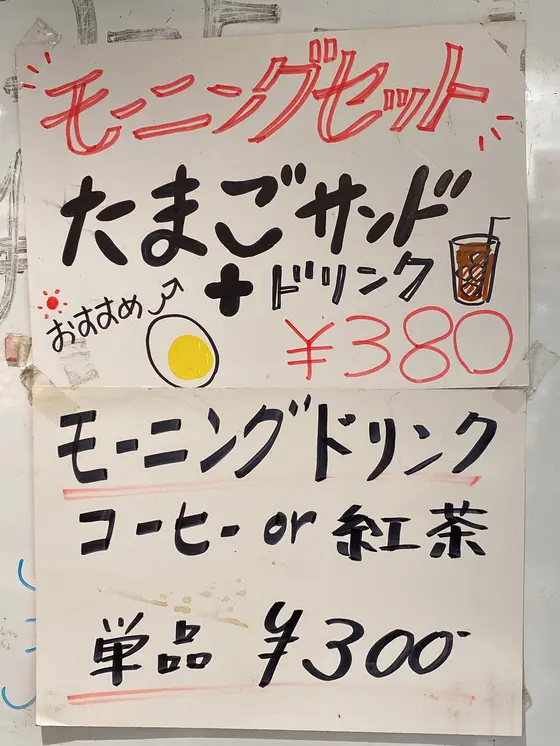 モーニングセット
たまごサンド
+ドリンク
おすすめ
¥380
モーニングドリンク
コーヒー or 紅茶
単品 ¥300-